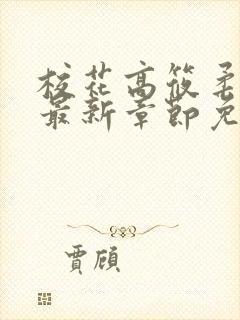 校花高筱柔
最新章節免
賈頎